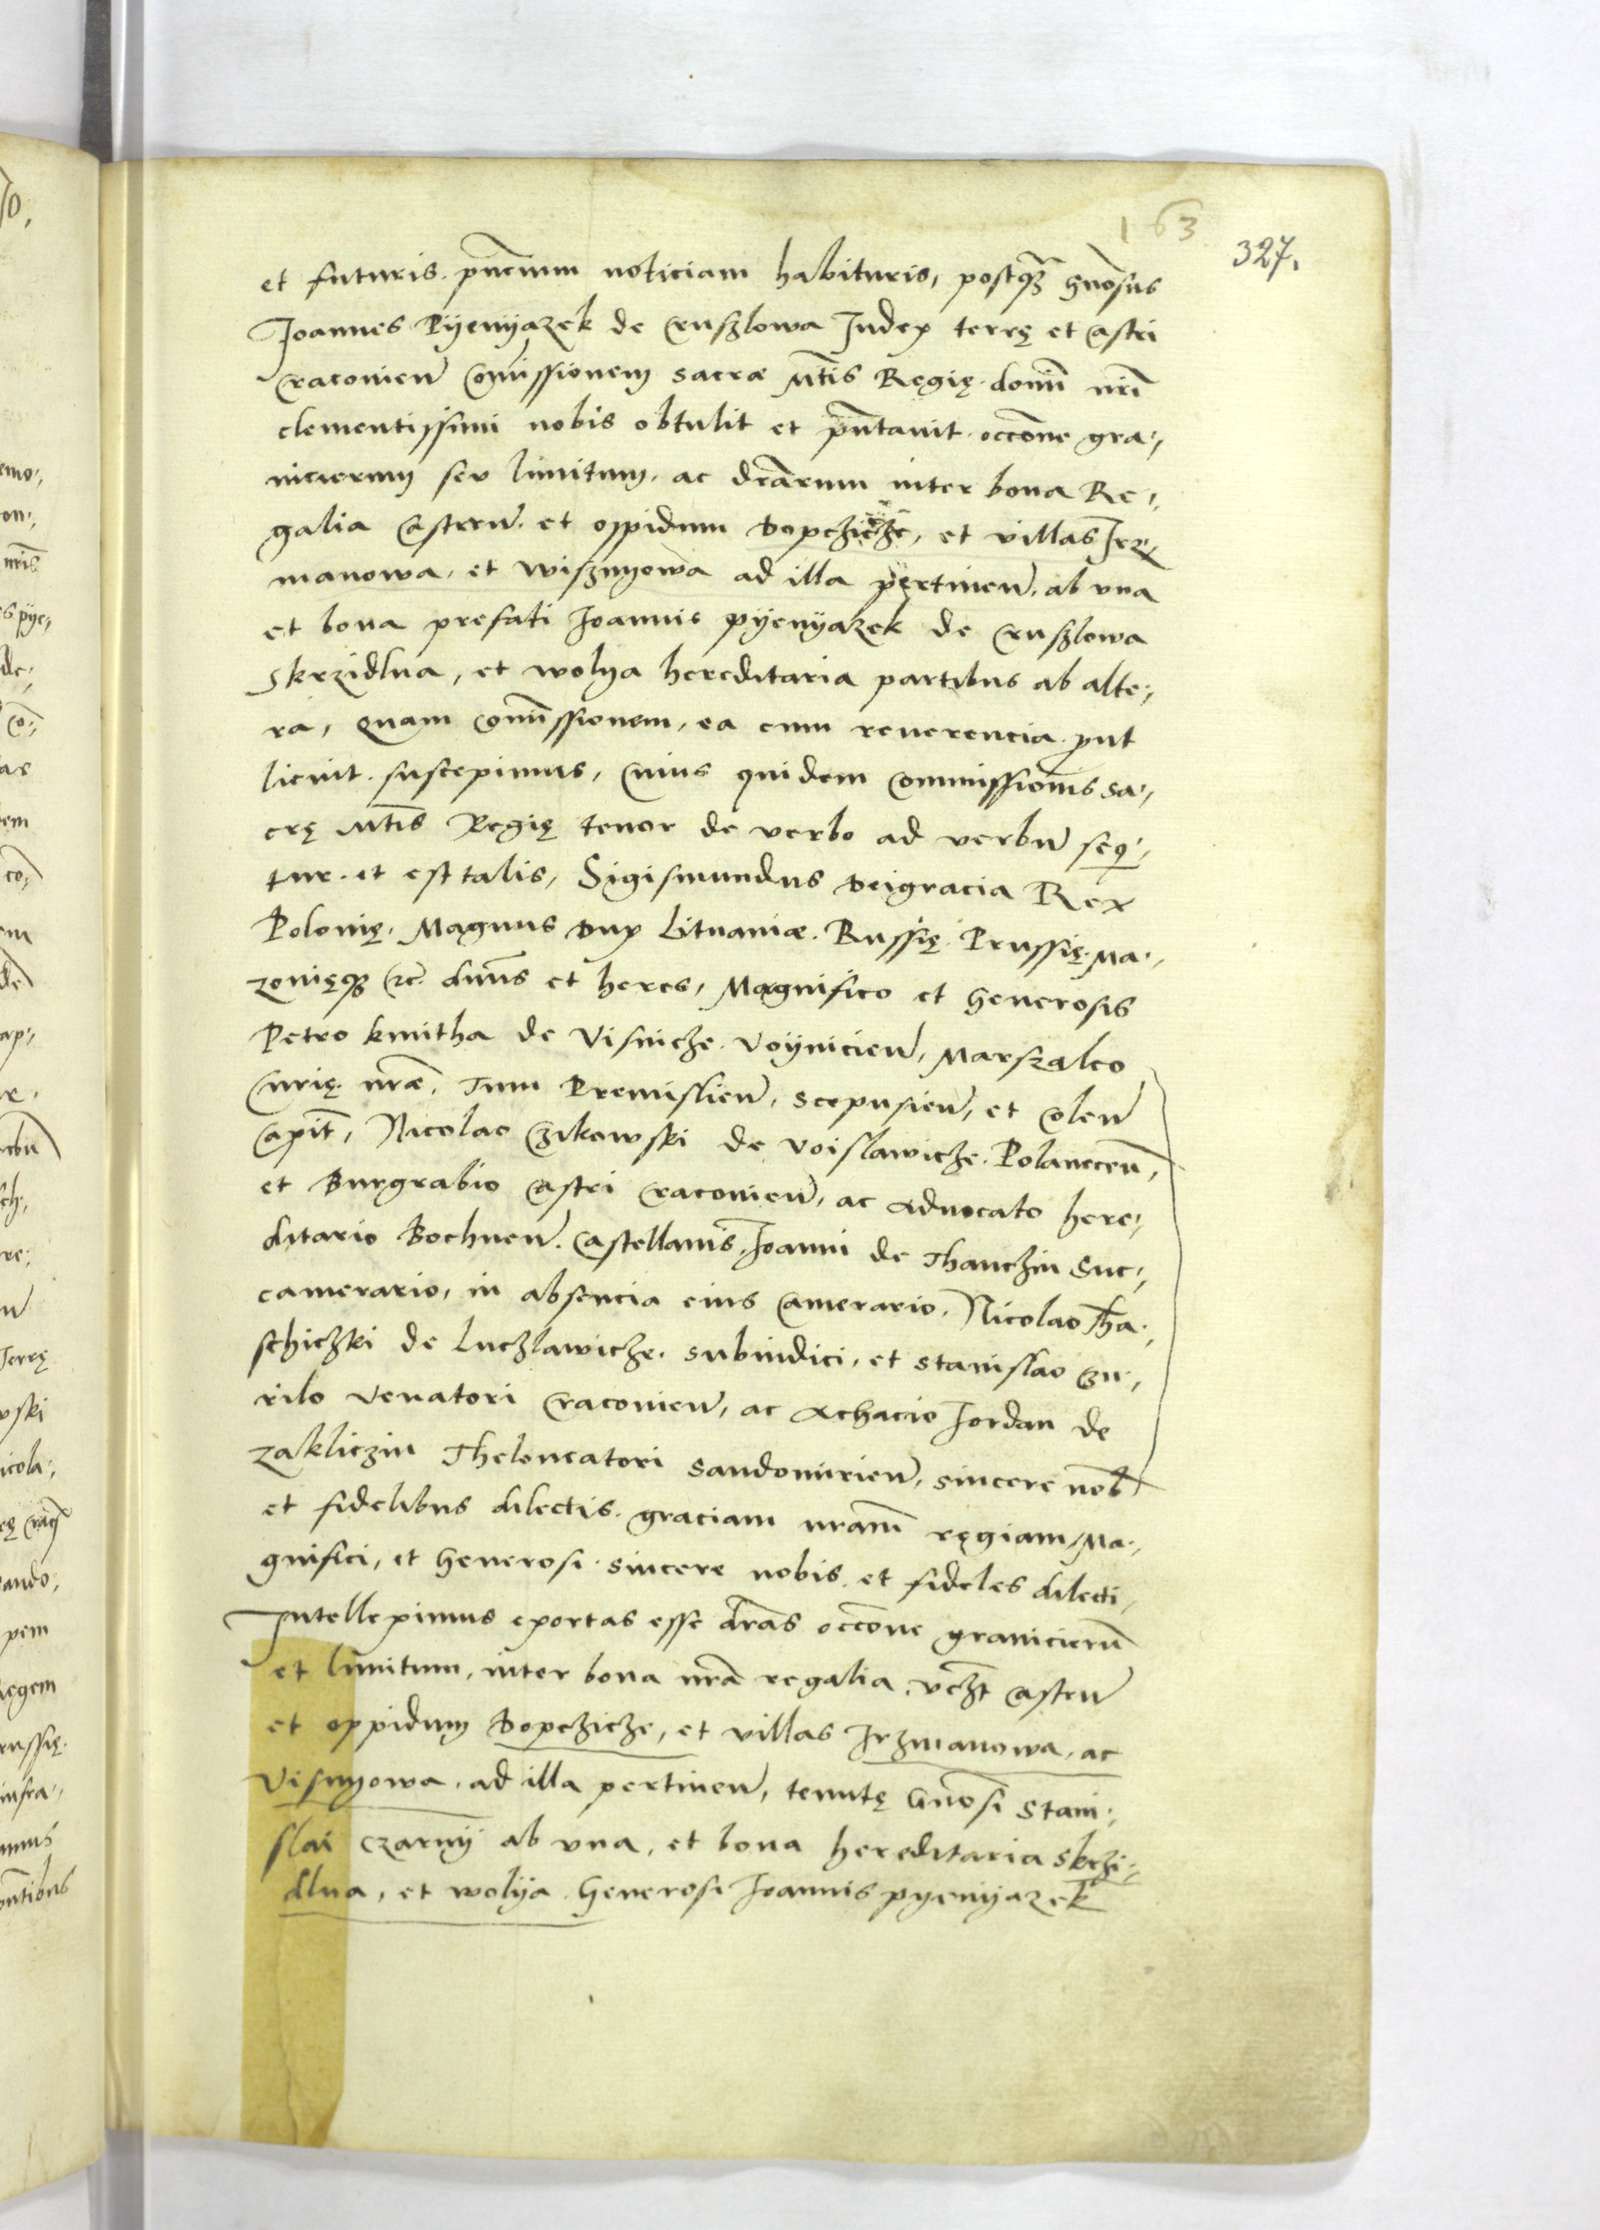 163
327.
et futuris pñcium noticiam habituris, postq̃ gñosus
Joannes Pyenyazek de Cruszlowa Judex terrę et Castri
Cracovien̄ Com̄issionem sacræ Mt̄is Regię domin̄i nr̄i
clementissimi nobis obtulit et pñtavit occōne gra⸗
nicierum seu limitum ac dr̄arum inter bona Re⸗
galia Castrum̄ et oppidum Dopcziche, et villas Jrz⸗
manowa, et Wisznyowa ad illa pertinen̄ ab una
et bona prefati Joannis Pyenyazek de Cruszlowa
Skrzidlna, et Wolya hereditaria partibus ab alte⸗
ra, Quam Com̄issionem, ea cum reverencia put
licuit suscepimus, Cuius quidem Commissionis sa⸗
crę Mt̄is Regię tenor de verbo ad verbū sequi⸗
tur et est talis, Sigismundus Dei gracia Rex
Polonię, Magnus Dux Lituaniæ, Russię, Prussię, Ma⸗
zovięq̃ etc̃ dn̄us et heres, Magnifico et Generosis
Petro Kmitha de Visnicze Voynicien̄, Marszalco
Curię nr̄æ, Tum Premislien̄, Scepusien̄, et Colen̄
Capit̄, Nicolao Czikowski de Voislawicze Polanecen̄,
et Burgrabio Castri Cracovien̄, ac Advocato here⸗
ditario Bochnen̄ Castellanis, Joanni de Thanczin Suc⸗
camerario, in absencia eius Camerario, Nicolao Tha⸗
schiczki de Luczlawicze Subiudici, et Stanislao Czu⸗
rilo Venatori Cracovien̄, ac Achacio Jordan de
Zakliczin Theloneatori Sandomirien̄, sincere nob̄
et fidelibus dilectis graciam nr̄am regiam, Ma⸗
gnifici, et Generosi sincere nobis et fideles dilecti,
Intelleximus exortas esse dr̄as occōne granicierū
et limitum, inter bona nr̄a regalia vz̄t Castrū
et oppidum Dopczicze, et villas Jrzmanowa, ac
Visnyowa, ad illa pertinen̄, tenutę Gn̄osi Stani⸗
slai Czarny ab una, et bona hereditaria Skrzi⸗
dlna, et Wolya Generosi Joannis Pyenyazek